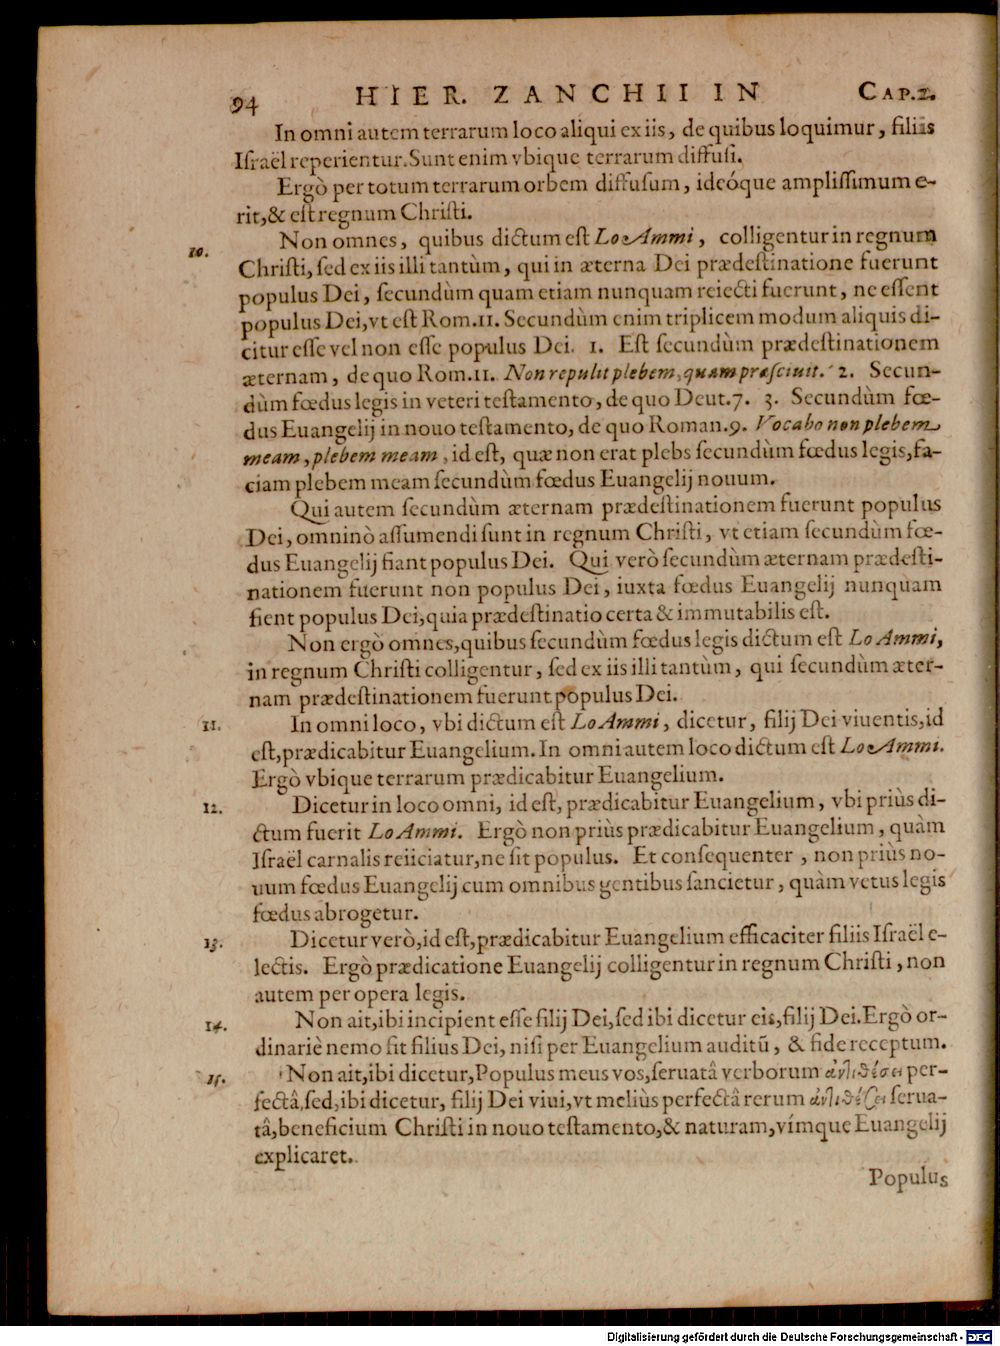 94 HIER. ZANCHII IN CAP.2.
In omni autem terrarum loco aliqui ex iis, de quibus loquimur, filiis
Iſraël reperientur. Sunt enim vbique terrarum diffuſi.
Ergò per totum terrarum orbem diffuſum, ideóque ampliſſimum e-
rit, & eſt regnum Chriſti.
10. Non omnes, quibus dictum eſt Lo Ammi, colligentur in regnum
Chriſti, ſed ex iis illi tantùm, qui in æterna Dei prædeſtinatione fuerunt
populus Dei, ſecundùm quam etiam nunquam reiecti fuerunt, ne eſſent
populus Dei, vt eſt Rom.11. Secundùm enim triplicem modum aliquis di-
citur eſſe vel non eſſe populus Dei. 1. Eſt ſecundùm prædeſtinationem
æternam, de quo Rom.11. Non repulit plebem, quam præſciuit. 2. Secun-
dùm fœdus legis in veteri teſtamento, de quo Deut.7. 3. Secundùm fœ-
dus Euangelij in nouo teſtamento, de quo Roman.9. Vocabo non plebem
meam, plebem meam, id eſt, quæ non erat plebs ſecundùm fœdus legis, fa-
ciam plebem meam ſecundùm fœdus Euangelij nouum.
Qui autem ſecundùm æternam prædeſtinationem fuerunt populus
Dei, omninò aſſumendi ſunt in regnum Chriſti, vt etiam ſecundùm fœ-
dus Euangelij fiant populus Dei. Qui verò ſecundùm æternam prædeſti-
nationem fuerunt non populus Dei, iuxta fœdus Euangelij nunquam
fient populus Dei, quia prædeſtinatio certa & immutabilis eſt.
Non ergò omnes, quibus ſecundùm fœdus legis dictum eſt Lo Ammi,
in regnum Chriſti colligentur, ſed ex iis illi tantùm, qui ſecundùm æter-
nam prædeſtinationem fuerunt populus Dei.
11. In omni loco, vbi dictum eſt Lo Ammi, dicetur, filij Dei viuentis, id
eſt, prædicabitur Euangelium. In omni autem loco dictum eſt Lo Ammi.
Ergò vbique terrarum prædicabitur Euangelium.
12. Dicetur in loco omni, id eſt, prædicabitur Euangelium, vbi priùs di-
ctum fuerit Lo Ammi. Ergò non priùs prædicabitur Euangelium, quàm
Iſraël carnalis reiiciatur, ne ſit populus. Et conſequenter, non priùs no-
uum fœdus Euangelij cum omnibus gentibus ſancietur, quàm vetus legis
fœdus abrogetur.
13. Dicetur verò, id eſt, prædicabitur Euangelium efficaciter filiis Iſraël e-
lectis. Ergò prædicatione Euangelij colligentur in regnum Chriſti, non
autem per opera legis.
14. Non ait, ibi incipient eſſe filij Dei, ſed ibi dicetur eis, filij Dei. Ergò or-
dinariè nemo fit filius Dei, niſi per Euangelium auditũ, & fide receptum.
15. Non ait, ibi dicetur, Populus meus vos, ſeruatâ verborum ἀντιθέσει per-
fectâ, ſed, ibi dicetur, filij Dei viui, vt meliùs perfectâ rerum ἀντιθέσει ſerua-
tâ, beneficium Chriſti in nouo teſtamento, & naturam, vímque Euangelij
explicaret.
Populus
Digitalisierung gefördert durch die Deutsche Forschungsgemeinschaft - DFG